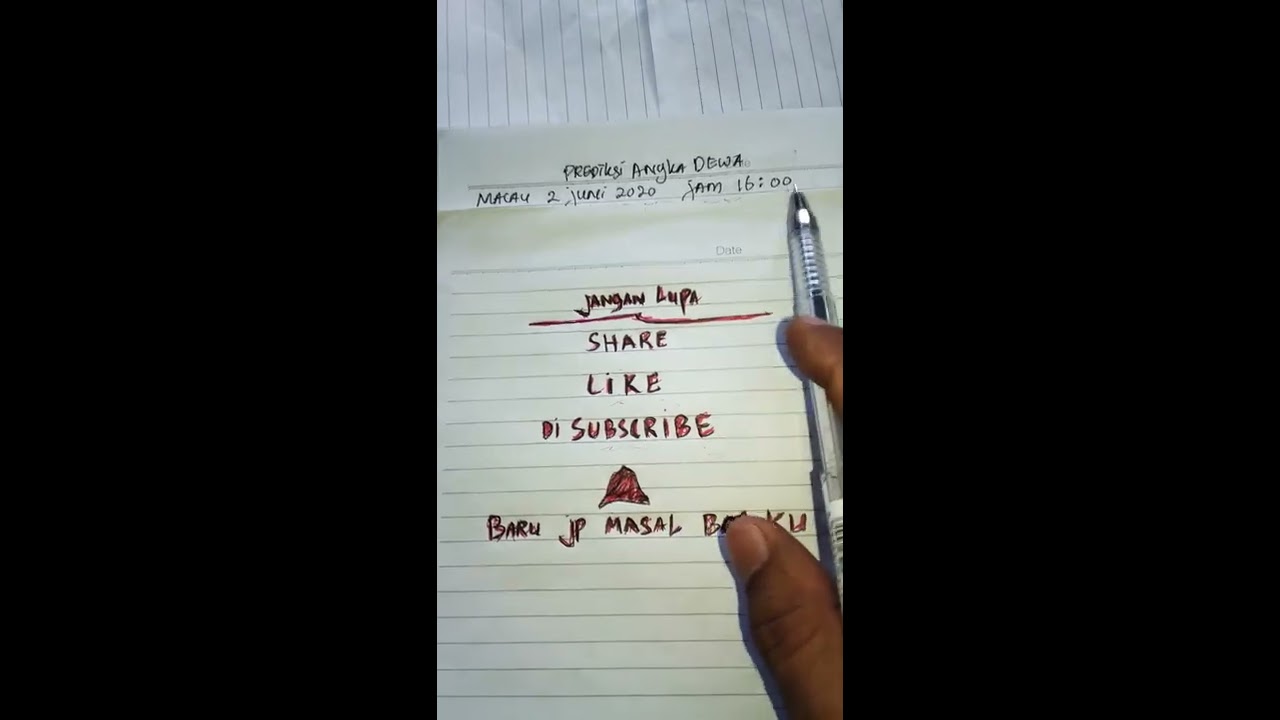 PREDIKSI ANGKA DEWA
MACAU 2 juni 2020 jAM 16:00
Date
jANGAN LUPA
SHARE
LiKE
Di SUBSCRIBE
BARU jP MASAL